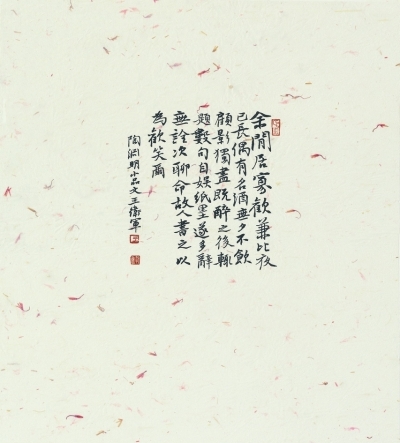 余閒居寡歡兼比夜
已長偶有名酒無夕不飲
顧影獨盡既醉之後輒
題數句自娛紙墨遂多辭
無詮次聊命故人書之以
為歡笑爾
陶淵明小品文王衛軍